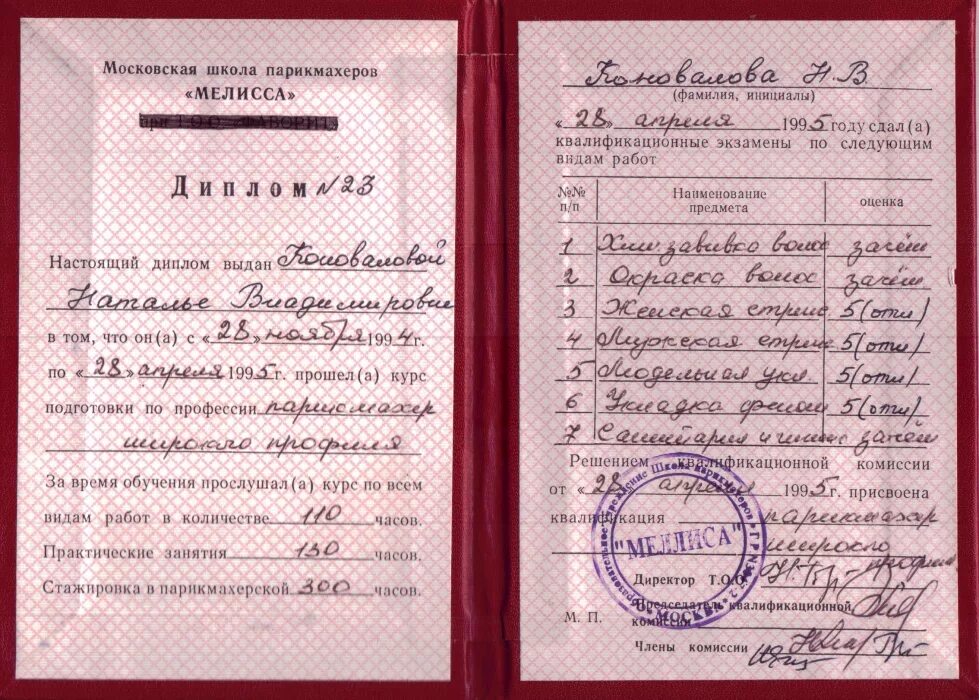 Московская школа парикмахеров
«МЕЛИССА»
при Т О О ФАВОРИТ
Диплом №23
Настоящий диплом выдан Коноваловой
Наталье Владимировне
в том, что он(а) с «28» ноября 1994г.
по «28» апреля 1995г. прошел(а) курс
подготовки по профессии парикмахер
широкго профиля
За время обучения прослушал(а) курс по всем
видам работ в количестве 110 часов.
Практические занятия 130 часов.
Стажировка в парикмахерской 300 часов.
Коновалова Н.В
(фамилия, инициалы)
«28» апреля 1995 году сдал(а)
квалификационные экзамены по следующим
видам работ
№№ п/п Наименование предмета оценка
1 Хим завивка волос зачёт
2 Окраска волос зачёт
3 Женская стриж 5(отл)
4 Мужская стриж 5(отл)
5 Модельная укл. 5(отл)
6 Укладка феном 5(отл)
7 Санитария и гигиен зачёт
Решением квалификационной комиссии
от «28 апреля 1995г. присвоена
квалификация парикмахер
широкго профиля
Директор Т.О.О
Председатель квалификационной
М. П. комиссии
Члены комиссии
"МЕЛЛИСА"
МОСКВА